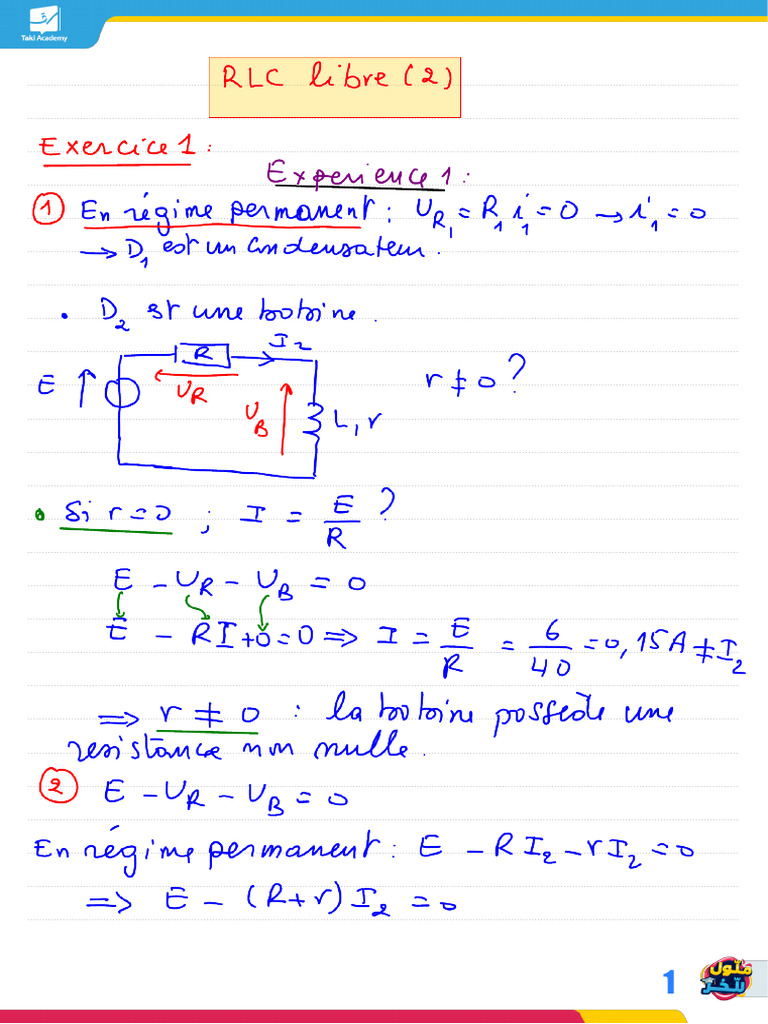 Taki Academy
RLC libre (2)
Exercice 1 :
Experience 1 :
① En régime permanent : U_R₁ = R₁ i₁ = 0 → i₁ = 0
→ D₁ est un condensateur.
• D₂ est une bobine.
R I₂
E U_R r ≠ 0 ?
U_B L, r
• Si r = 0 ; I = E/R ?
E - U_R - U_B = 0
E - RI + 0 = 0 ⇒ I = E/R = 6/40 = 0,15A ≠ I₂
⇒ r ≠ 0 : la bobine possède une
resistance non nulle.
② E - U_R - U_B = 0
En régime permanent : E - RI₂ - rI₂ = 0
⇒ E - (R+r) I₂ = 0
1